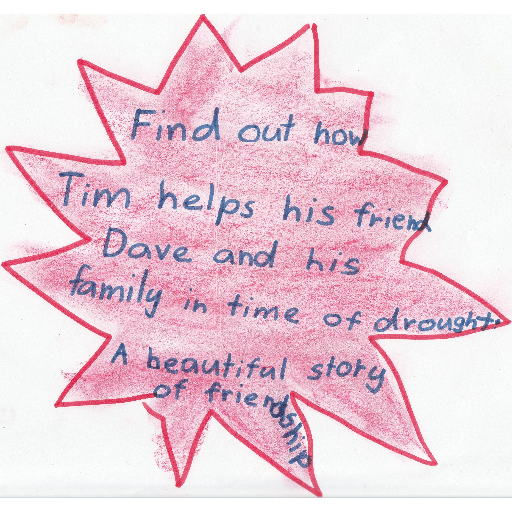 Find out how
Tim helps his friend
Dave and his
family in time of drought.
A beautiful story
of friendship